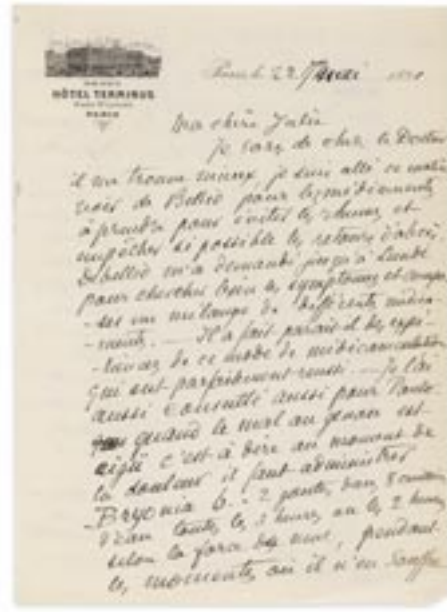 GRAND
HÔTEL TERMINUS
PARIS
Paris le 22 Mai
Ma chère Julie
Je sors de chez le Docteur
il me trouve mieux, je suis allé ce matin
voir de Bellio pour les médicaments
à prendre pour éviter les rhumes et
empêcher si possible les retours d'abcès
Debellio m'a demandé jusqu'à Lundi
pour chercher bien les symptomes et compo
-ser un mélange de différents médica
-ments. — Il a fait parait il des expé-
-riences de ce mode de médicamentation
qui ont parfaitement réussi. — Je l'ai
aussi consulté aussi pour
quand le mal au genou est
aigü c'est à dire au moment de
la douleur il faut administrer
Bryonia 6. 2 gouttes dans
d'eau toutes les 3 heures ou les 2 heures
selon la force du mal, pendant
les moments où il n'en souffre